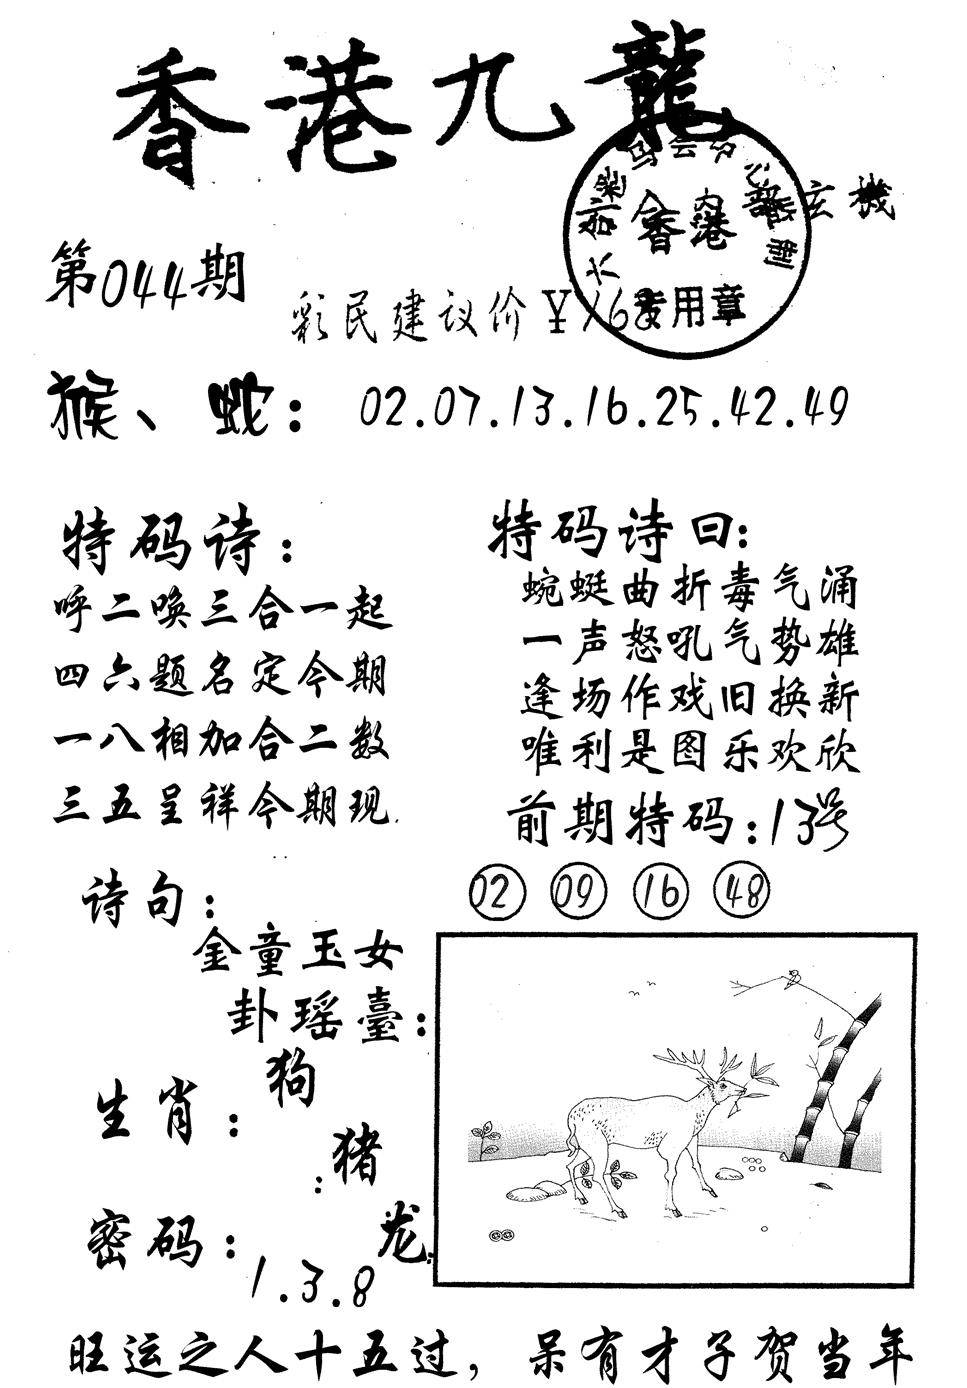 香港九龍
玄機
香港
专用章
第044期
彩民建议价￥168
猴、蛇：02.07.13.16.25.42.49
特码诗：
呼二唤三合一起
四六题名定今期
一八相加合二数
三五呈祥今期现
特码诗曰：
蜿蜒曲折毒气涌
一声怒吼气势雄
逢场作戏旧换新
唯利是图乐欢欣
前期特码：13号
02 09 16 48
诗句：
金童玉女
卦瑶臺：
生肖：狗
猪
龙
密码：
1.3.8
旺运之人十五过，呆有才子贺当年